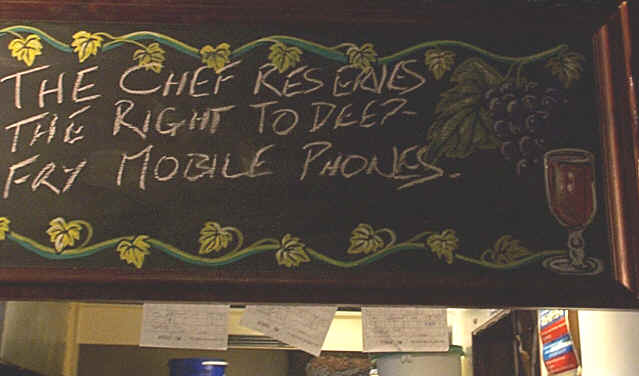 THE CHEF RESERVES
THE RIGHT TO DEEP-
FRY MOBILE PHONES.